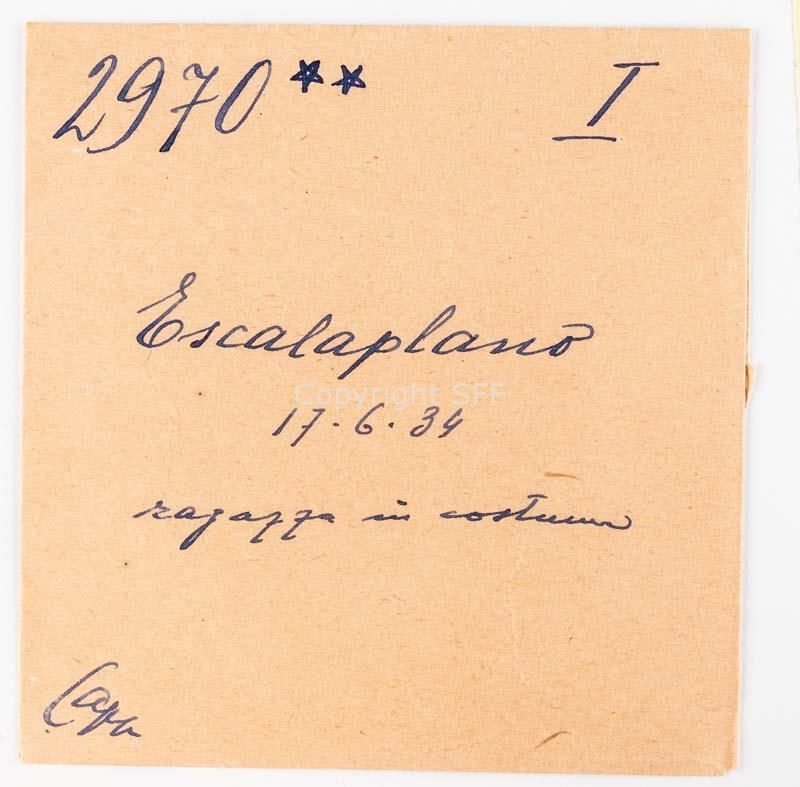 2970 ** I
Escalaplano
Copyright SFF
17.6.34
ragazza in costume